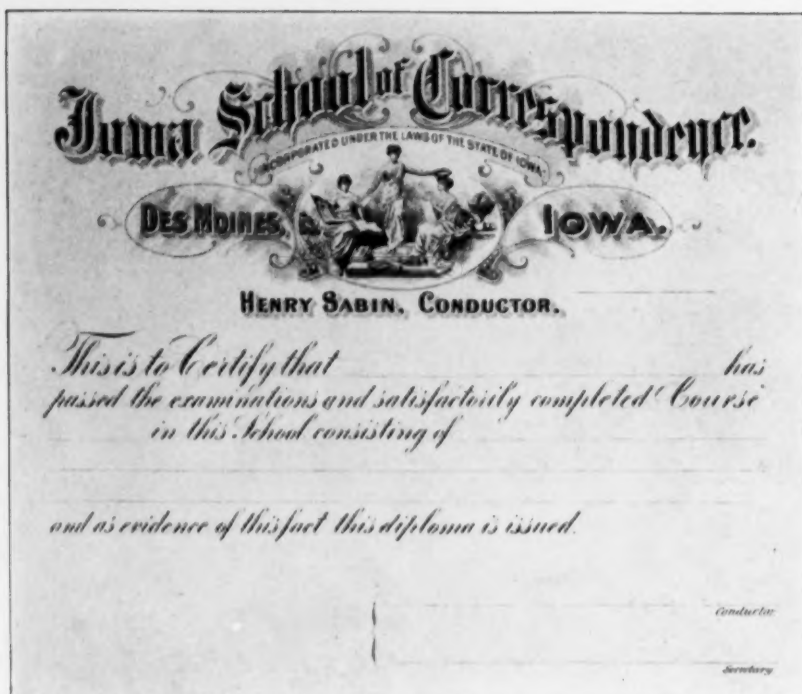 Iowa School of Correspondence.
INCORPORATED UNDER THE LAWS OF THE STATE OF IOWA.
DES MOINES, IOWA.
HENRY SABIN, CONDUCTOR.
This is to Certify that has
passed the examinations and satisfactorily completed Course
in this School consisting of
and as evidence of this fact this diploma is issued.
Conductor
Secretary